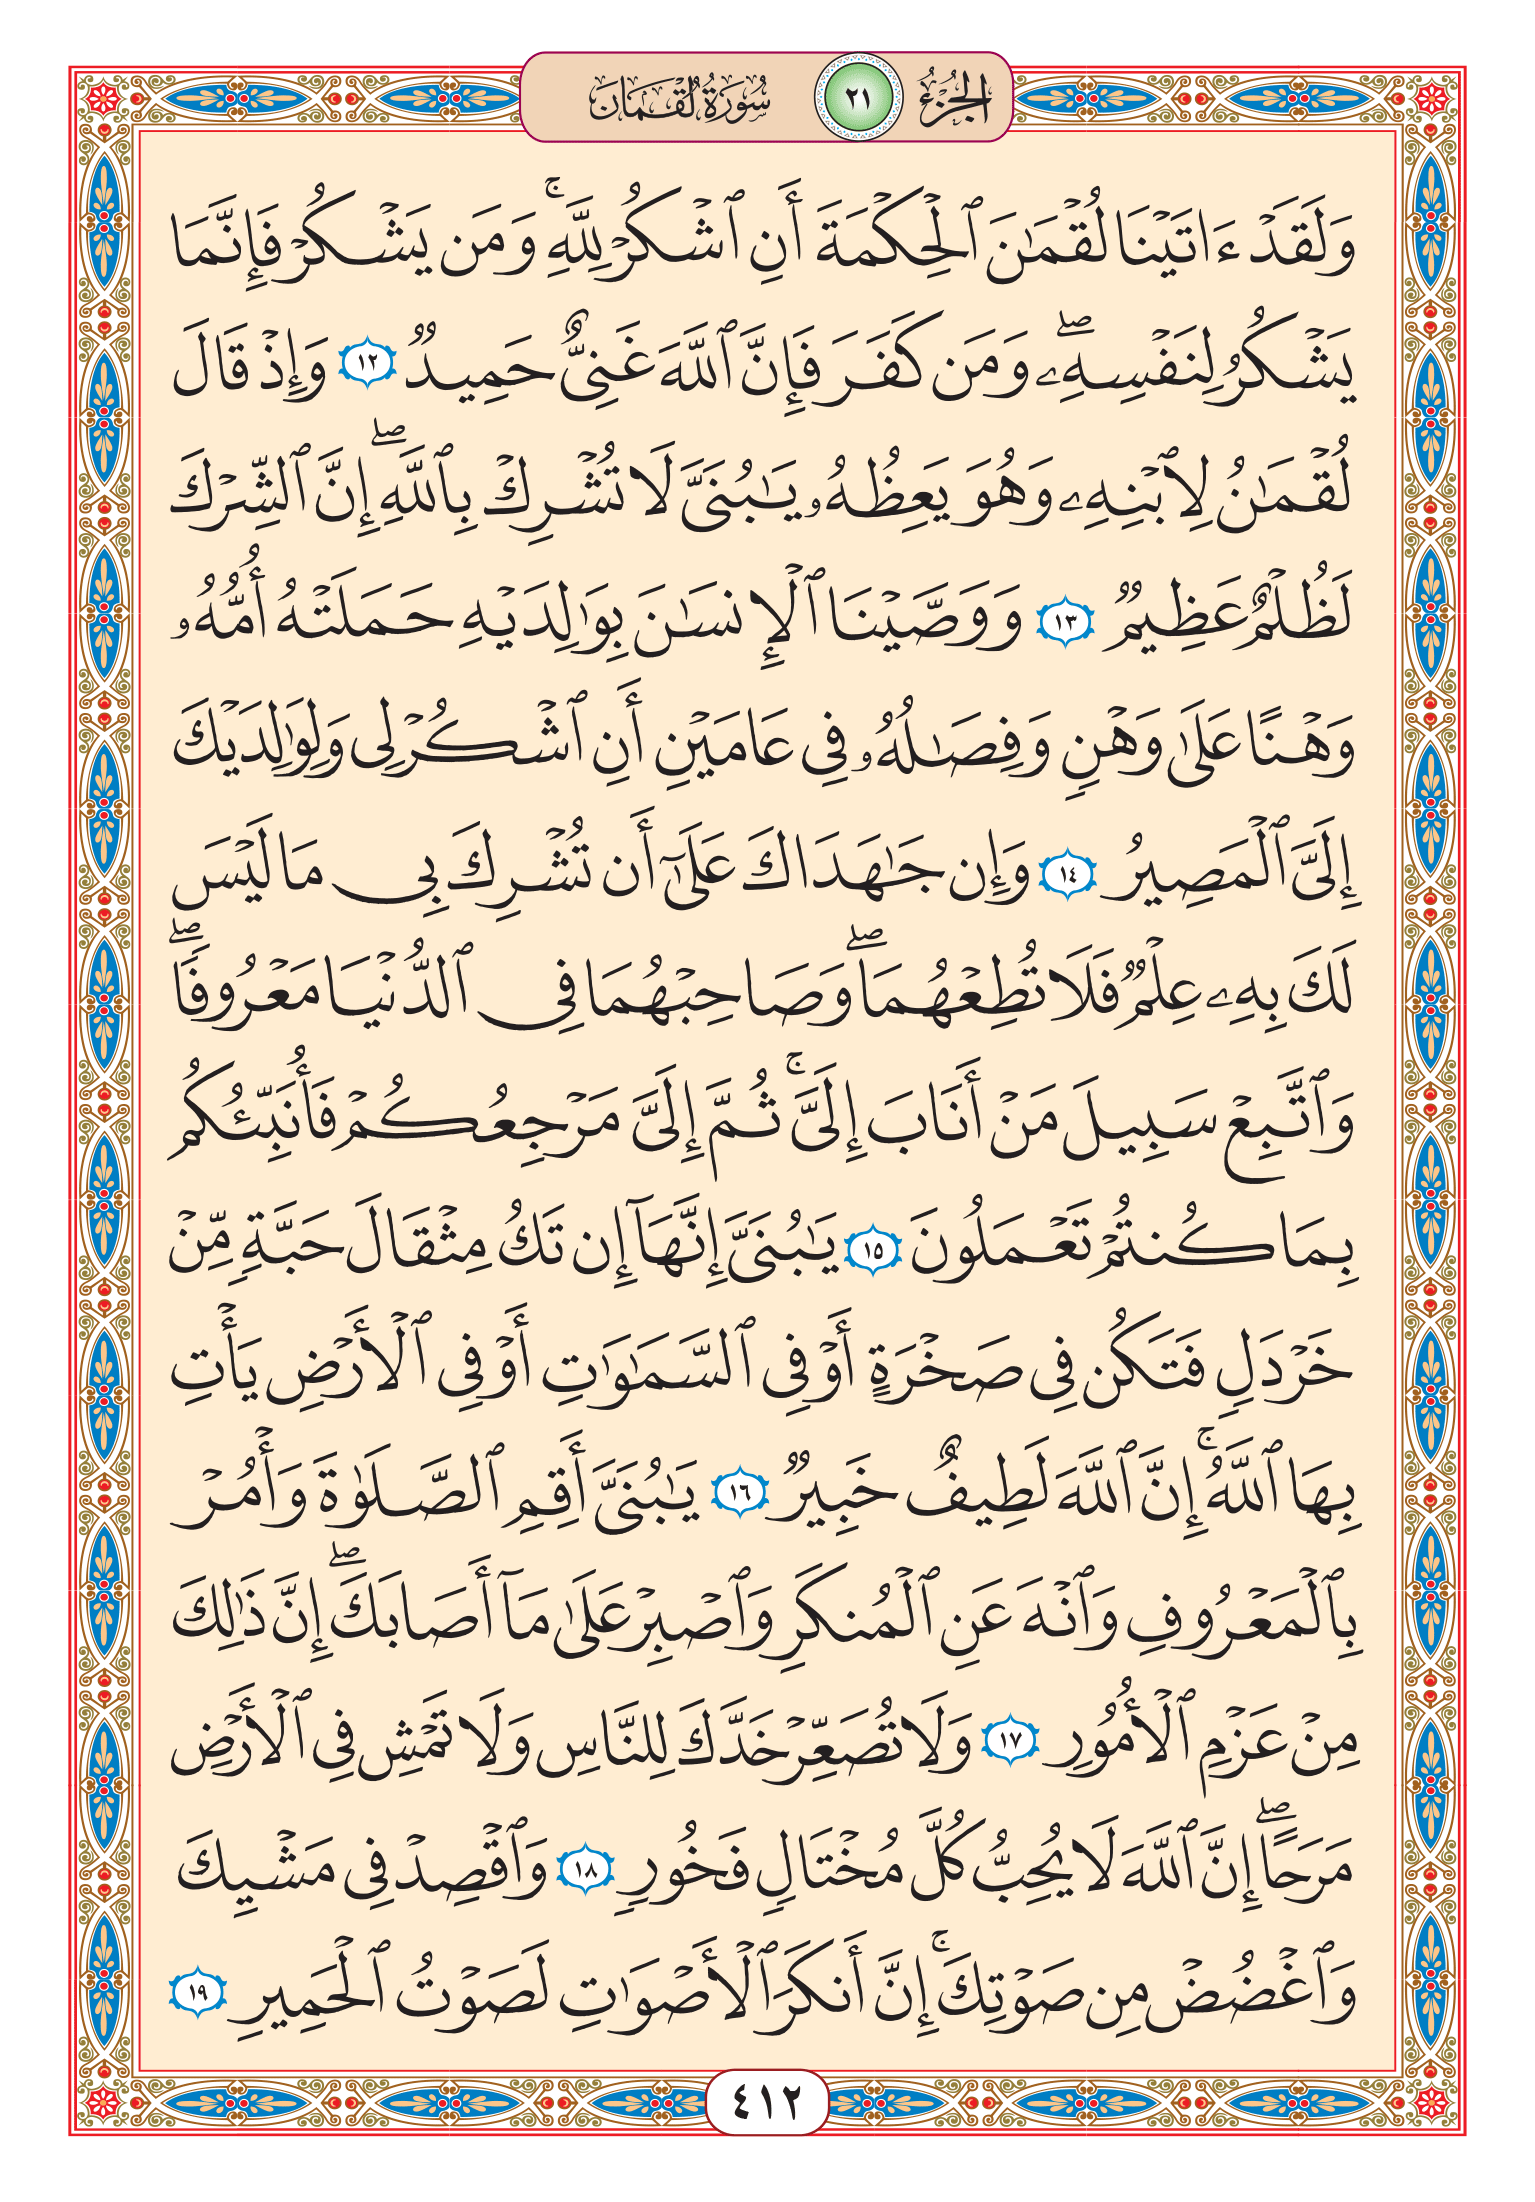 الجزء ٢١ سورة لقمان
وَلَقَدْ ءَاتَيْنَا لُقْمَٰنَ ٱلْحِكْمَةَ أَنِ ٱشْكُرْ لِلَّهِ ۚ وَمَن يَشْكُرْ فَإِنَّمَا
يَشْكُرُ لِنَفْسِهِۦ ۖ وَمَن كَفَرَ فَإِنَّ ٱللَّهَ غَنِىٌّ حَمِيدٌ ١٢ وَإِذْ قَالَ
لُقْمَٰنُ لِٱبْنِهِۦ وَهُوَ يَعِظُهُۥ يَٰبُنَىَّ لَا تُشْرِكْ بِٱللَّهِ ۖ إِنَّ ٱلشِّرْكَ
لَظُلْمٌ عَظِيمٌ ١٣ وَوَصَّيْنَا ٱلْإِنسَٰنَ بِوَٰلِدَيْهِ حَمَلَتْهُ أُمُّهُۥ
وَهْنًا عَلَىٰ وَهْنٍ وَفِصَٰلُهُۥ فِى عَامَيْنِ أَنِ ٱشْكُرْ لِى وَلِوَٰلِدَيْكَ
إِلَىَّ ٱلْمَصِيرُ ١٤ وَإِن جَٰهَدَاكَ عَلَىٰٓ أَن تُشْرِكَ بِى مَا لَيْسَ
لَكَ بِهِۦ عِلْمٌ فَلَا تُطِعْهُمَا ۖ وَصَاحِبْهُمَا فِى ٱلدُّنْيَا مَعْرُوفًا ۖ
وَٱتَّبِعْ سَبِيلَ مَنْ أَنَابَ إِلَىَّ ۚ ثُمَّ إِلَىَّ مَرْجِعُكُمْ فَأُنَبِّئُكُم
بِمَا كُنتُمْ تَعْمَلُونَ ١٥ يَٰبُنَىَّ إِنَّهَآ إِن تَكُ مِثْقَالَ حَبَّةٍ مِّنْ
خَرْدَلٍ فَتَكُن فِى صَخْرَةٍ أَوْ فِى ٱلسَّمَٰوَٰتِ أَوْ فِى ٱلْأَرْضِ يَأْتِ
بِهَا ٱللَّهُ ۚ إِنَّ ٱللَّهَ لَطِيفٌ خَبِيرٌ ١٦ يَٰبُنَىَّ أَقِمِ ٱلصَّلَوٰةَ وَأْمُرْ
بِٱلْمَعْرُوفِ وَٱنْهَ عَنِ ٱلْمُنكَرِ وَٱصْبِرْ عَلَىٰ مَآ أَصَابَكَ ۖ إِنَّ ذَٰلِكَ
مِنْ عَزْمِ ٱلْأُمُورِ ١٧ وَلَا تُصَعِّرْ خَدَّكَ لِلنَّاسِ وَلَا تَمْشِ فِى ٱلْأَرْضِ
مَرَحًا ۖ إِنَّ ٱللَّهَ لَا يُحِبُّ كُلَّ مُخْتَالٍ فَخُورٍ ١٨ وَٱقْصِدْ فِى مَشْيِكَ
وَٱغْضُضْ مِن صَوْتِكَ ۚ إِنَّ أَنكَرَ ٱلْأَصْوَٰتِ لَصَوْتُ ٱلْحَمِيرِ ١٩
٤١٢